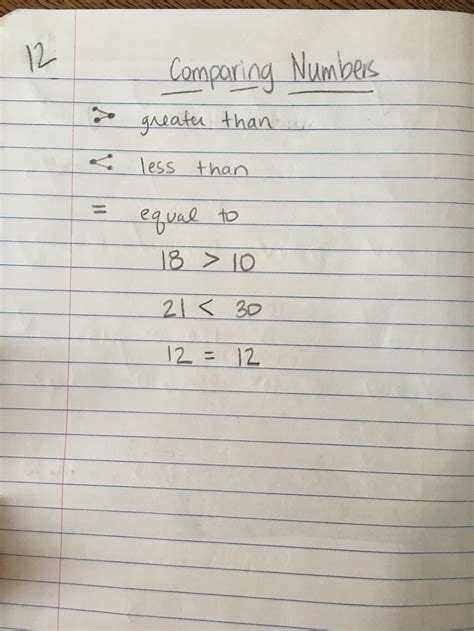 12
Comparing Numbers
> greater than
< less than
= equal to
18 > 10
21 < 30
12 = 12